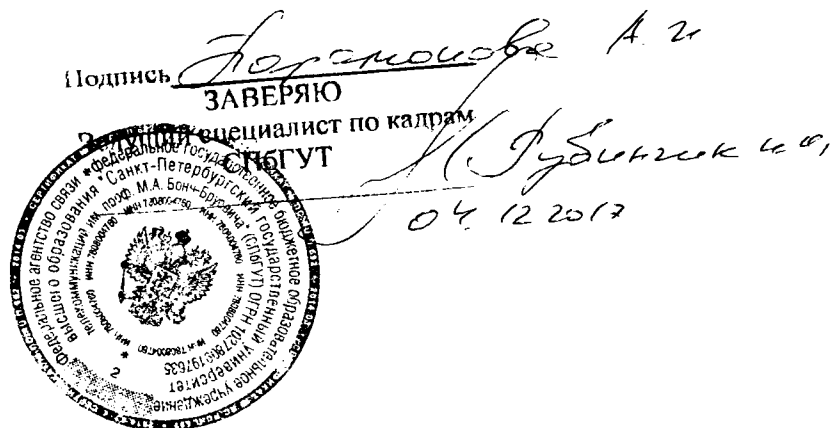 Подпись Парамонова А. И
ЗАВЕРЯЮ
Ведущий специалист по кадрам
СПбГУТ
(Рубинчик
04. 12 2017
Федеральное агентство связи * Федеральное государственное бюджетное образовательное учреждение
высшего образования "Санкт-Петербургский государственный университет
телекоммуникаций им. проф. М.А. Бонч-Бруевича" (СПбГУТ) ОГРН 1027809197635
ИНН 7808004760 ИНН 7808004760 ИНН 7808004760
* 2